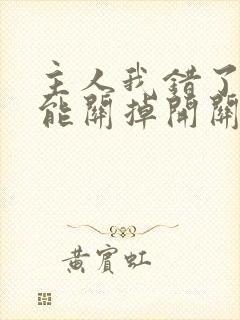 主人我錯了
能關掉開關
黃賓虹